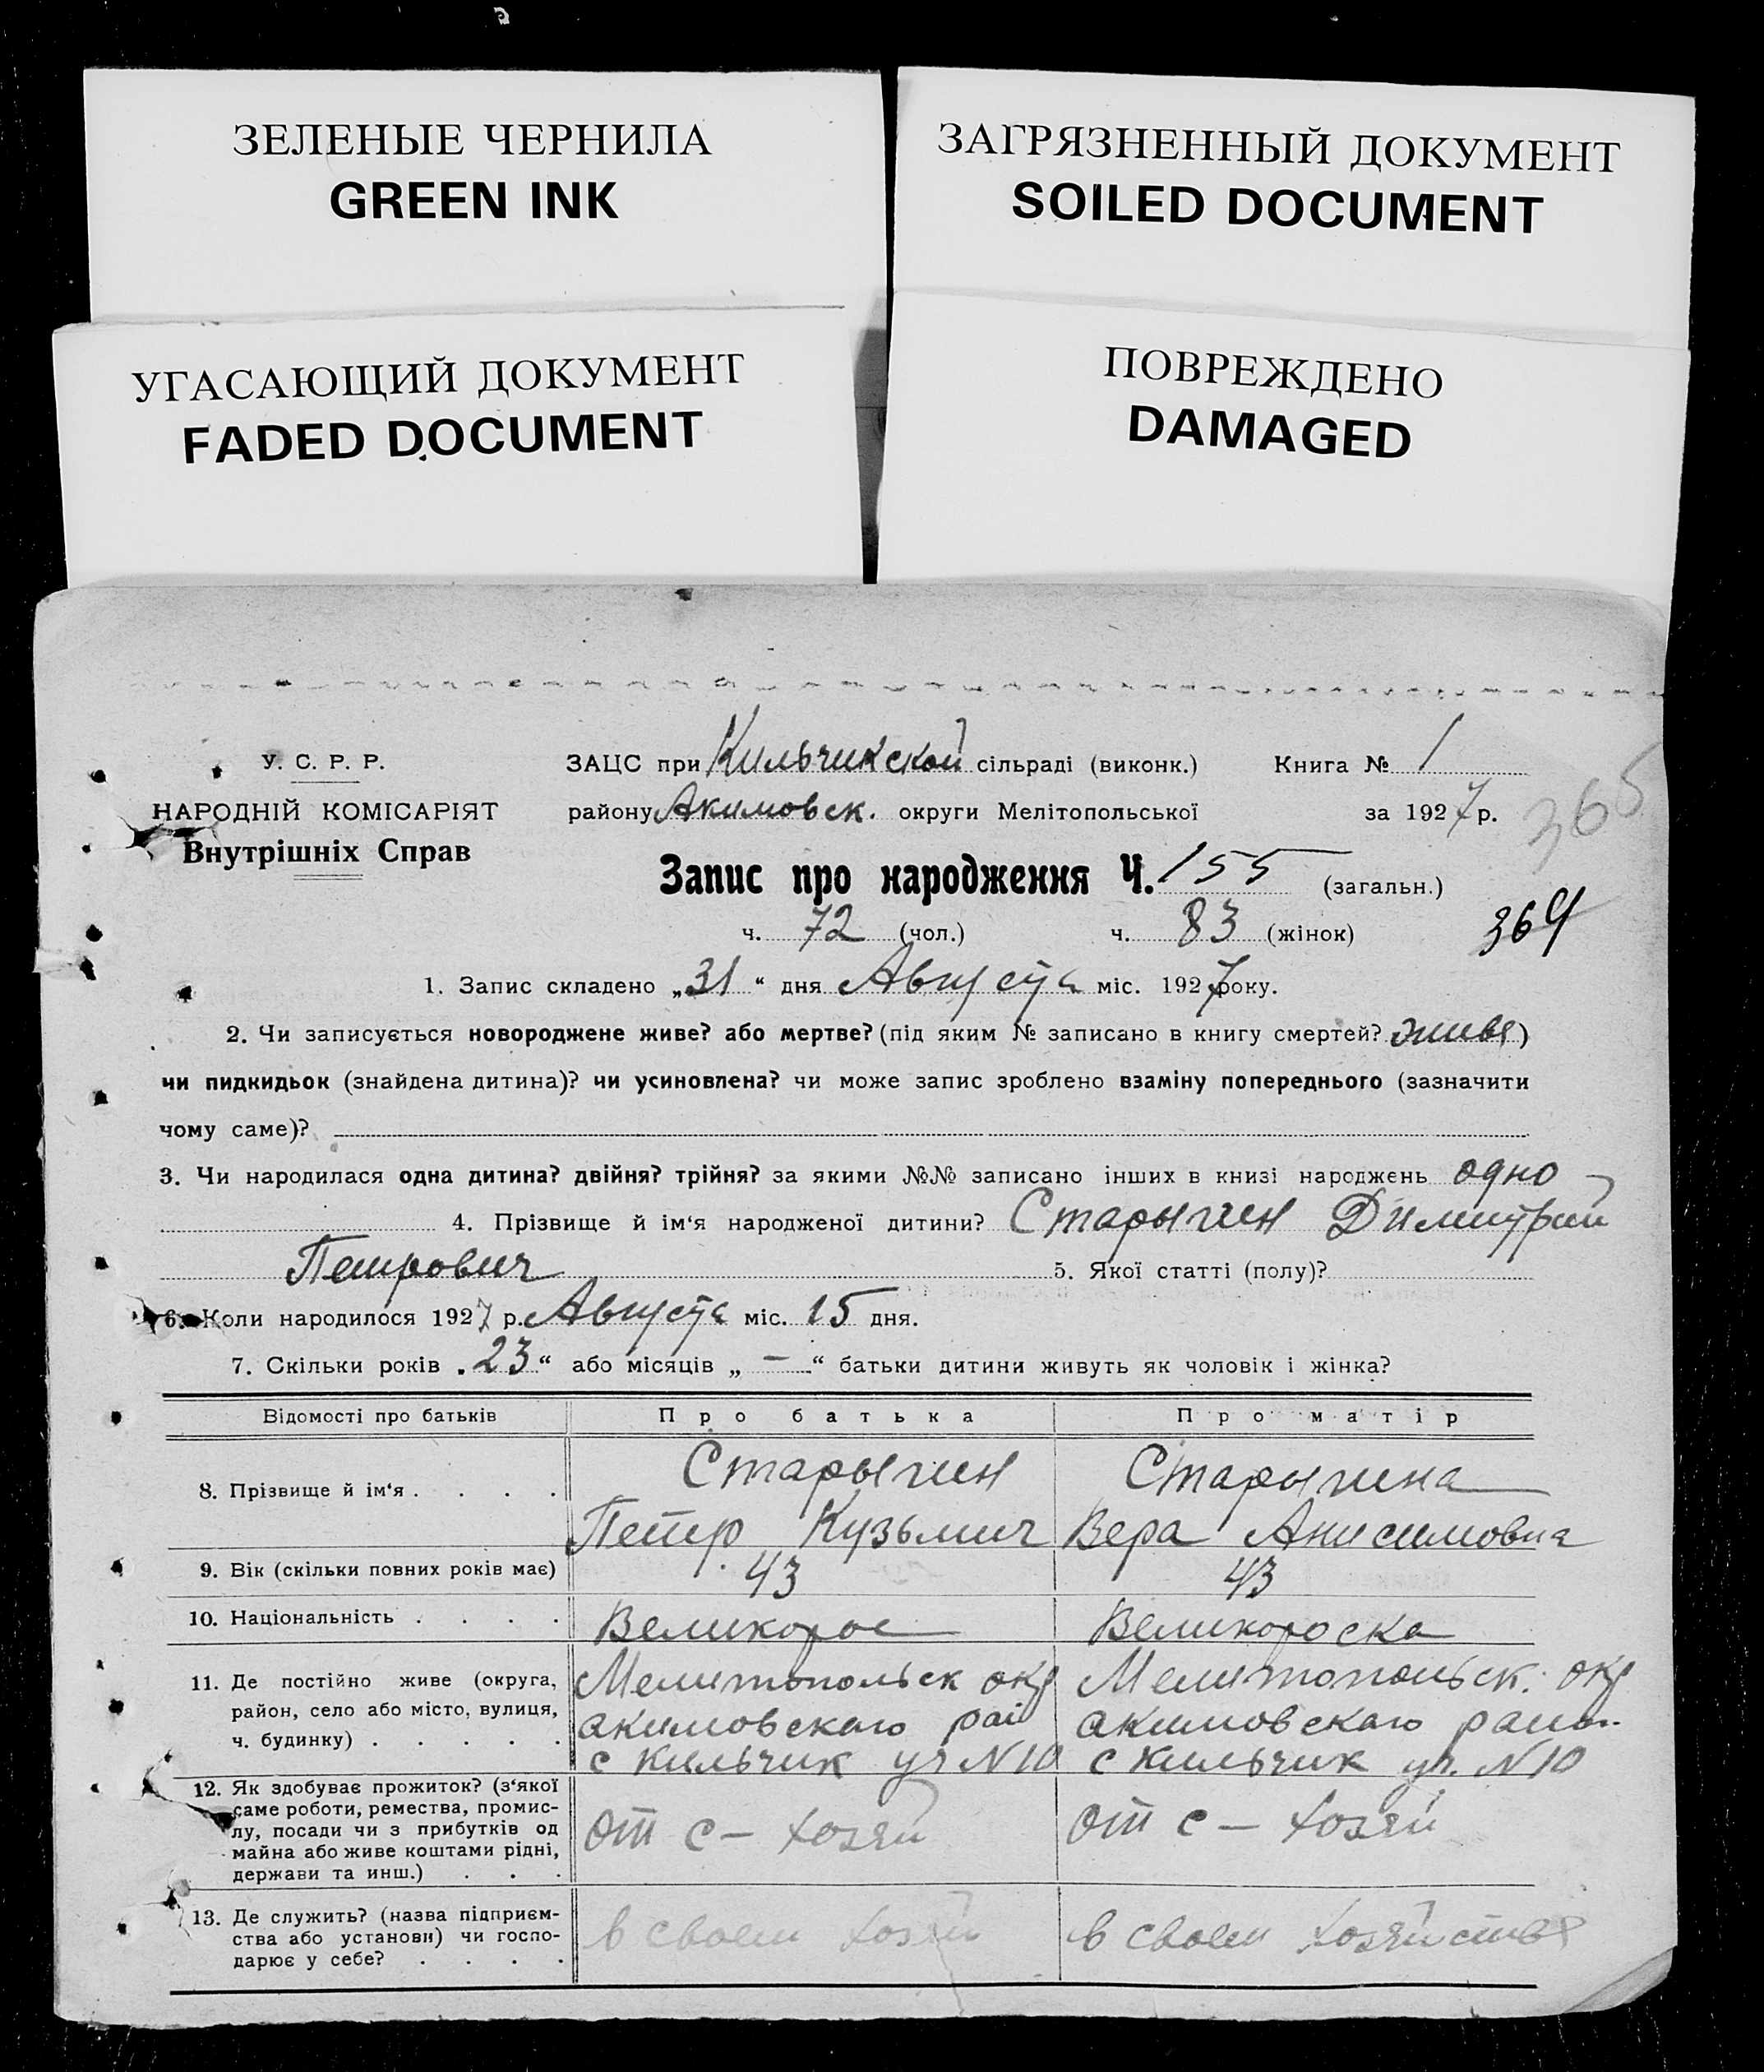 ЗЕЛЕНЫЕ ЧЕРНИЛА
GREEN INK
ЗАГРЯЗНЕННЫЙ ДОКУМЕНТ
SOILED DOCUMENT
УГАСАЮЩИЙ ДОКУМЕНТ
FADED DOCUMENT
ПОВРЕЖДЕНО
DAMAGED
У. С. Р. Р.
НАРОДНІЙ КОМІСАРІЯТ
Внутрішніх Справ
ЗАЦС при Кильчикской сільраді (виконк.) Книга № 1
району Акимовск. округи Мелітопольської за 1927 р.
365
Запис про народження Ч. 155 (загальн.)
ч. 72 (чол.) ч. 83 (жінок) 364
1. Запис складено „31“ дня Августа міс. 1927 року.
2. Чи записується новороджене живе? або мертве? (під яким № записано в книгу смертей? живе)
чи пидкидьок (знайдена дитина)? чи усиновлена? чи може запис зроблено взаміну попереднього (зазначити
чому саме)?
3. Чи народилася одна дитина? двійня? трійня? за якими №№ записано інших в книзі народжень одно
4. Прізвище й ім‘я народженої дитини? Старыгин Димитрий
Петрович 5. Якої статті (полу)?
6. Коли народилося 1927 р. Августа міс. 15 дня.
7. Скільки років „23“ або місяців „—“ батьки дитини живуть як чоловік і жінка?
Відомості про батьків Про батька Про матір
8. Прізвище й ім‘я . . . . Старыгин Старыгина
Петр Кузьмич Вера Анисимовна
9. Вік (скільки повних років має) 43 43
10. Національність . . . . Великорос Великороска
11. Де постійно живе (округа, Мелитопольск окр Мелитопольск. окр
район, село або місто, вулиця, акимовскаго рай акимовскаго район
ч. будинку) . . . . . с кильчик уч N 10 с кильчик уч. N 10
12. Як здобуває прожиток? (з‘якої
саме роботи, ремества, промис-
лу, посади чи з прибутків од от с – хозяй от с – хозяй
майна або живе коштами рідні,
держави та инш.) . . .
13. Де служить? (назва підприєм-
ства або установи) чи госпо- в своем хозяй в своем хозяйстве
дарює у себе? . . . .